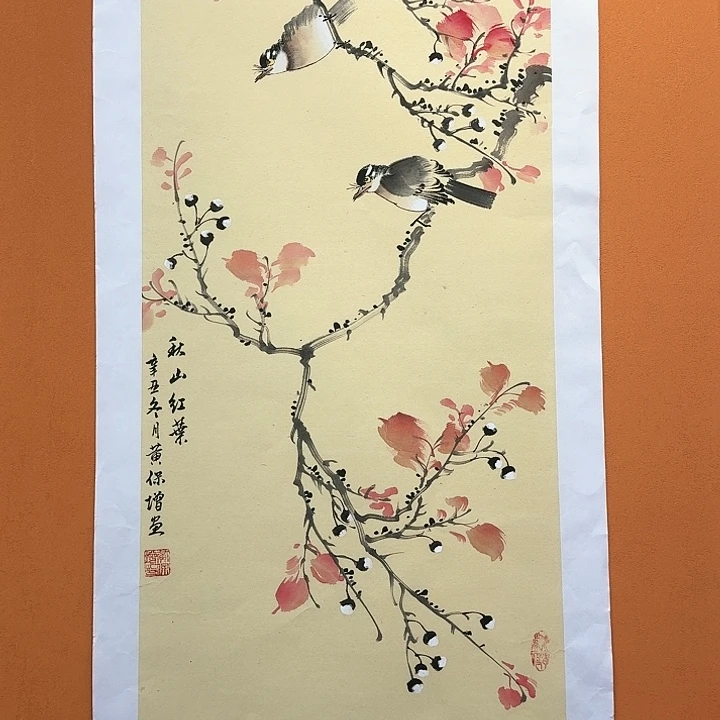 秋山红葉
辛丑冬月黄保增画